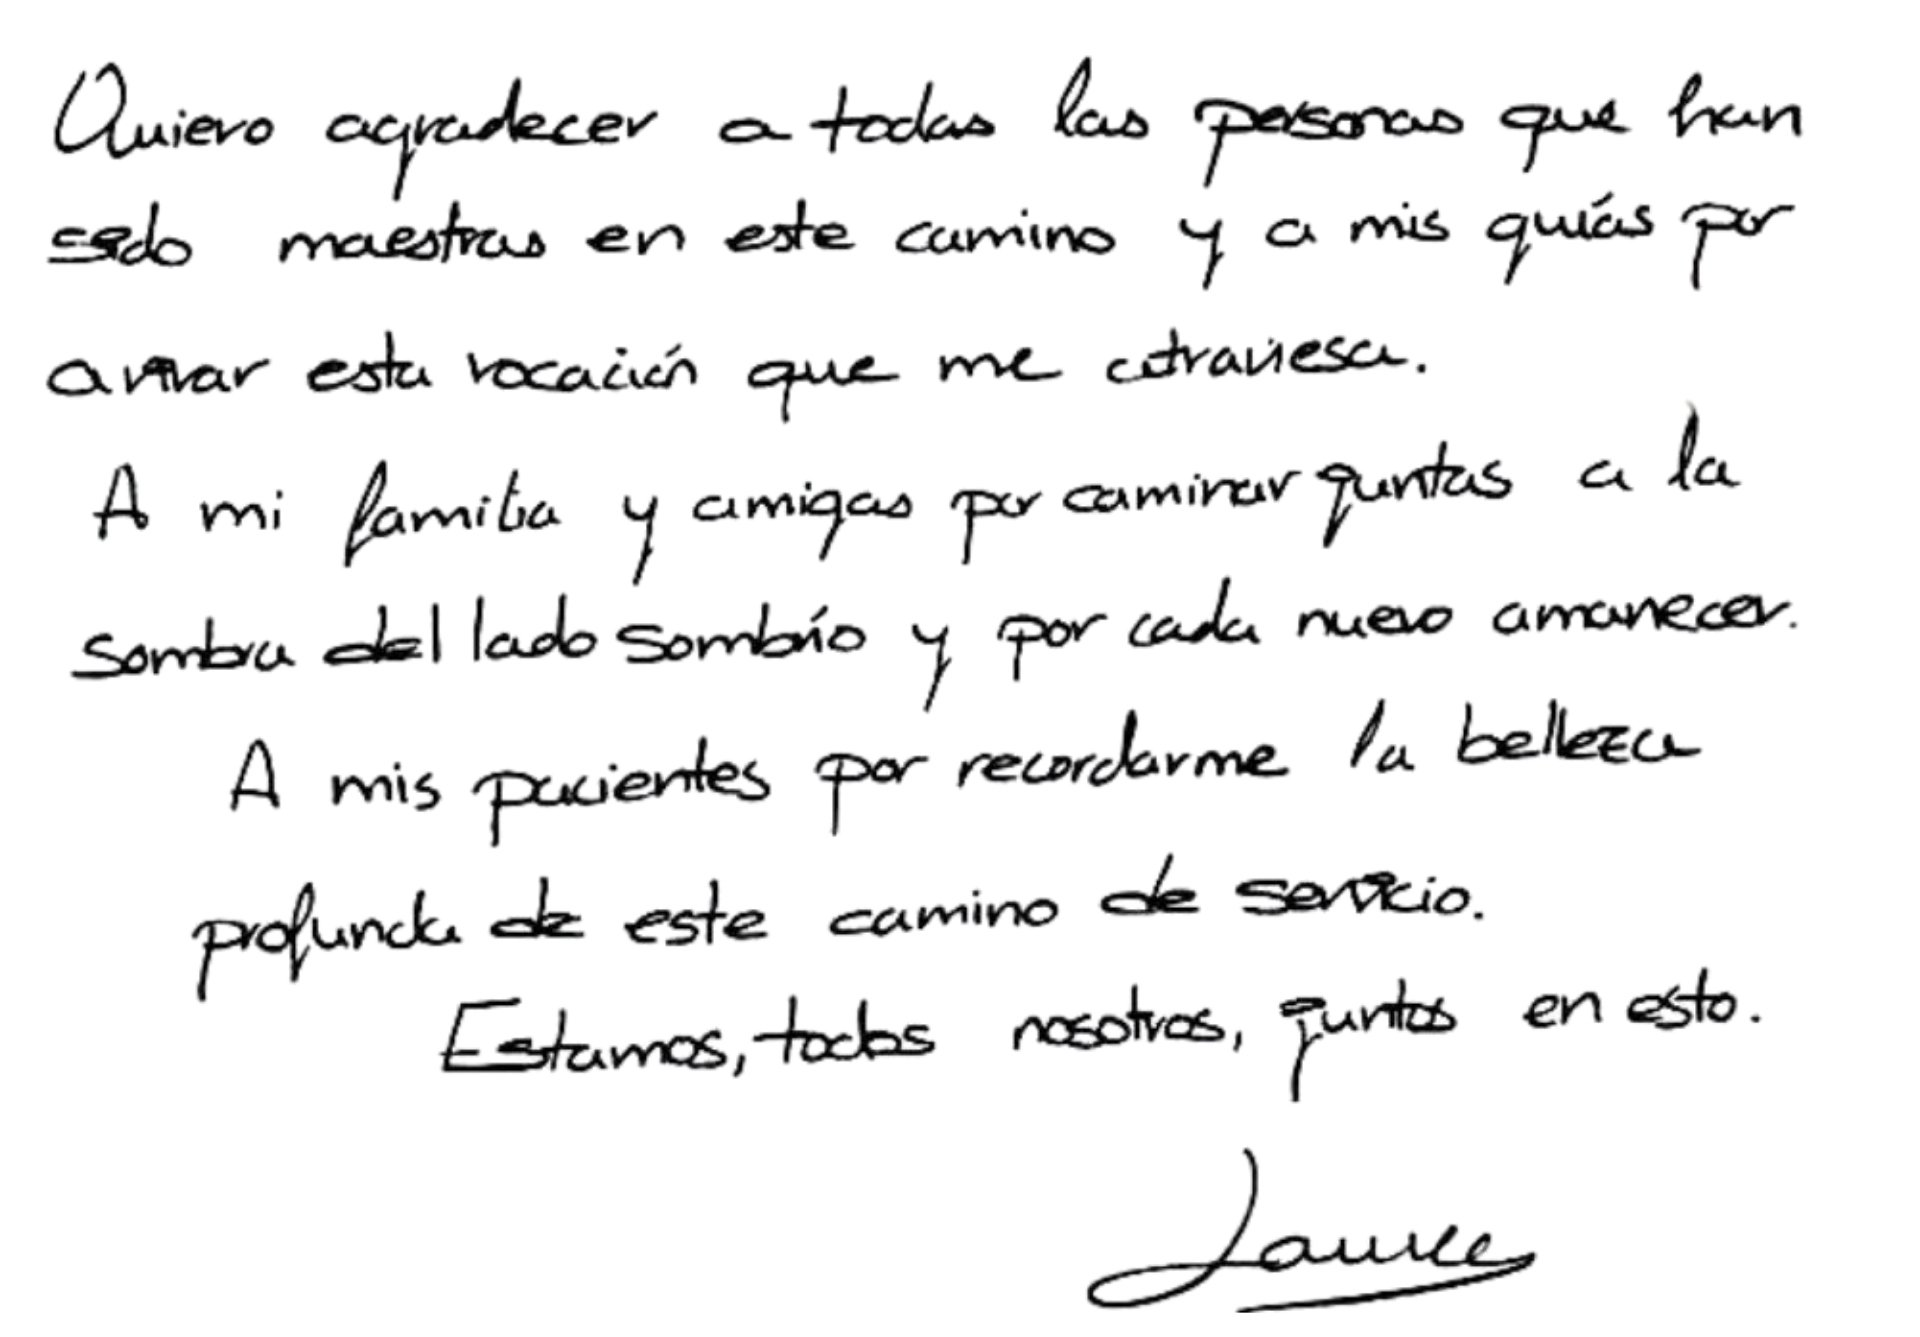 Quiero agradecer a todas las personas que han
sido maestras en este camino y a mis guías por
avivar esta vocación que me atraviesa.
A mi familia y amigas por caminar juntas a la
sombra del lado sombrío y por cada nuevo amanecer.
A mis pacientes por recordarme la belleza
profunda de este camino de servicio.
Estamos, todos nosotros, juntos en esto.